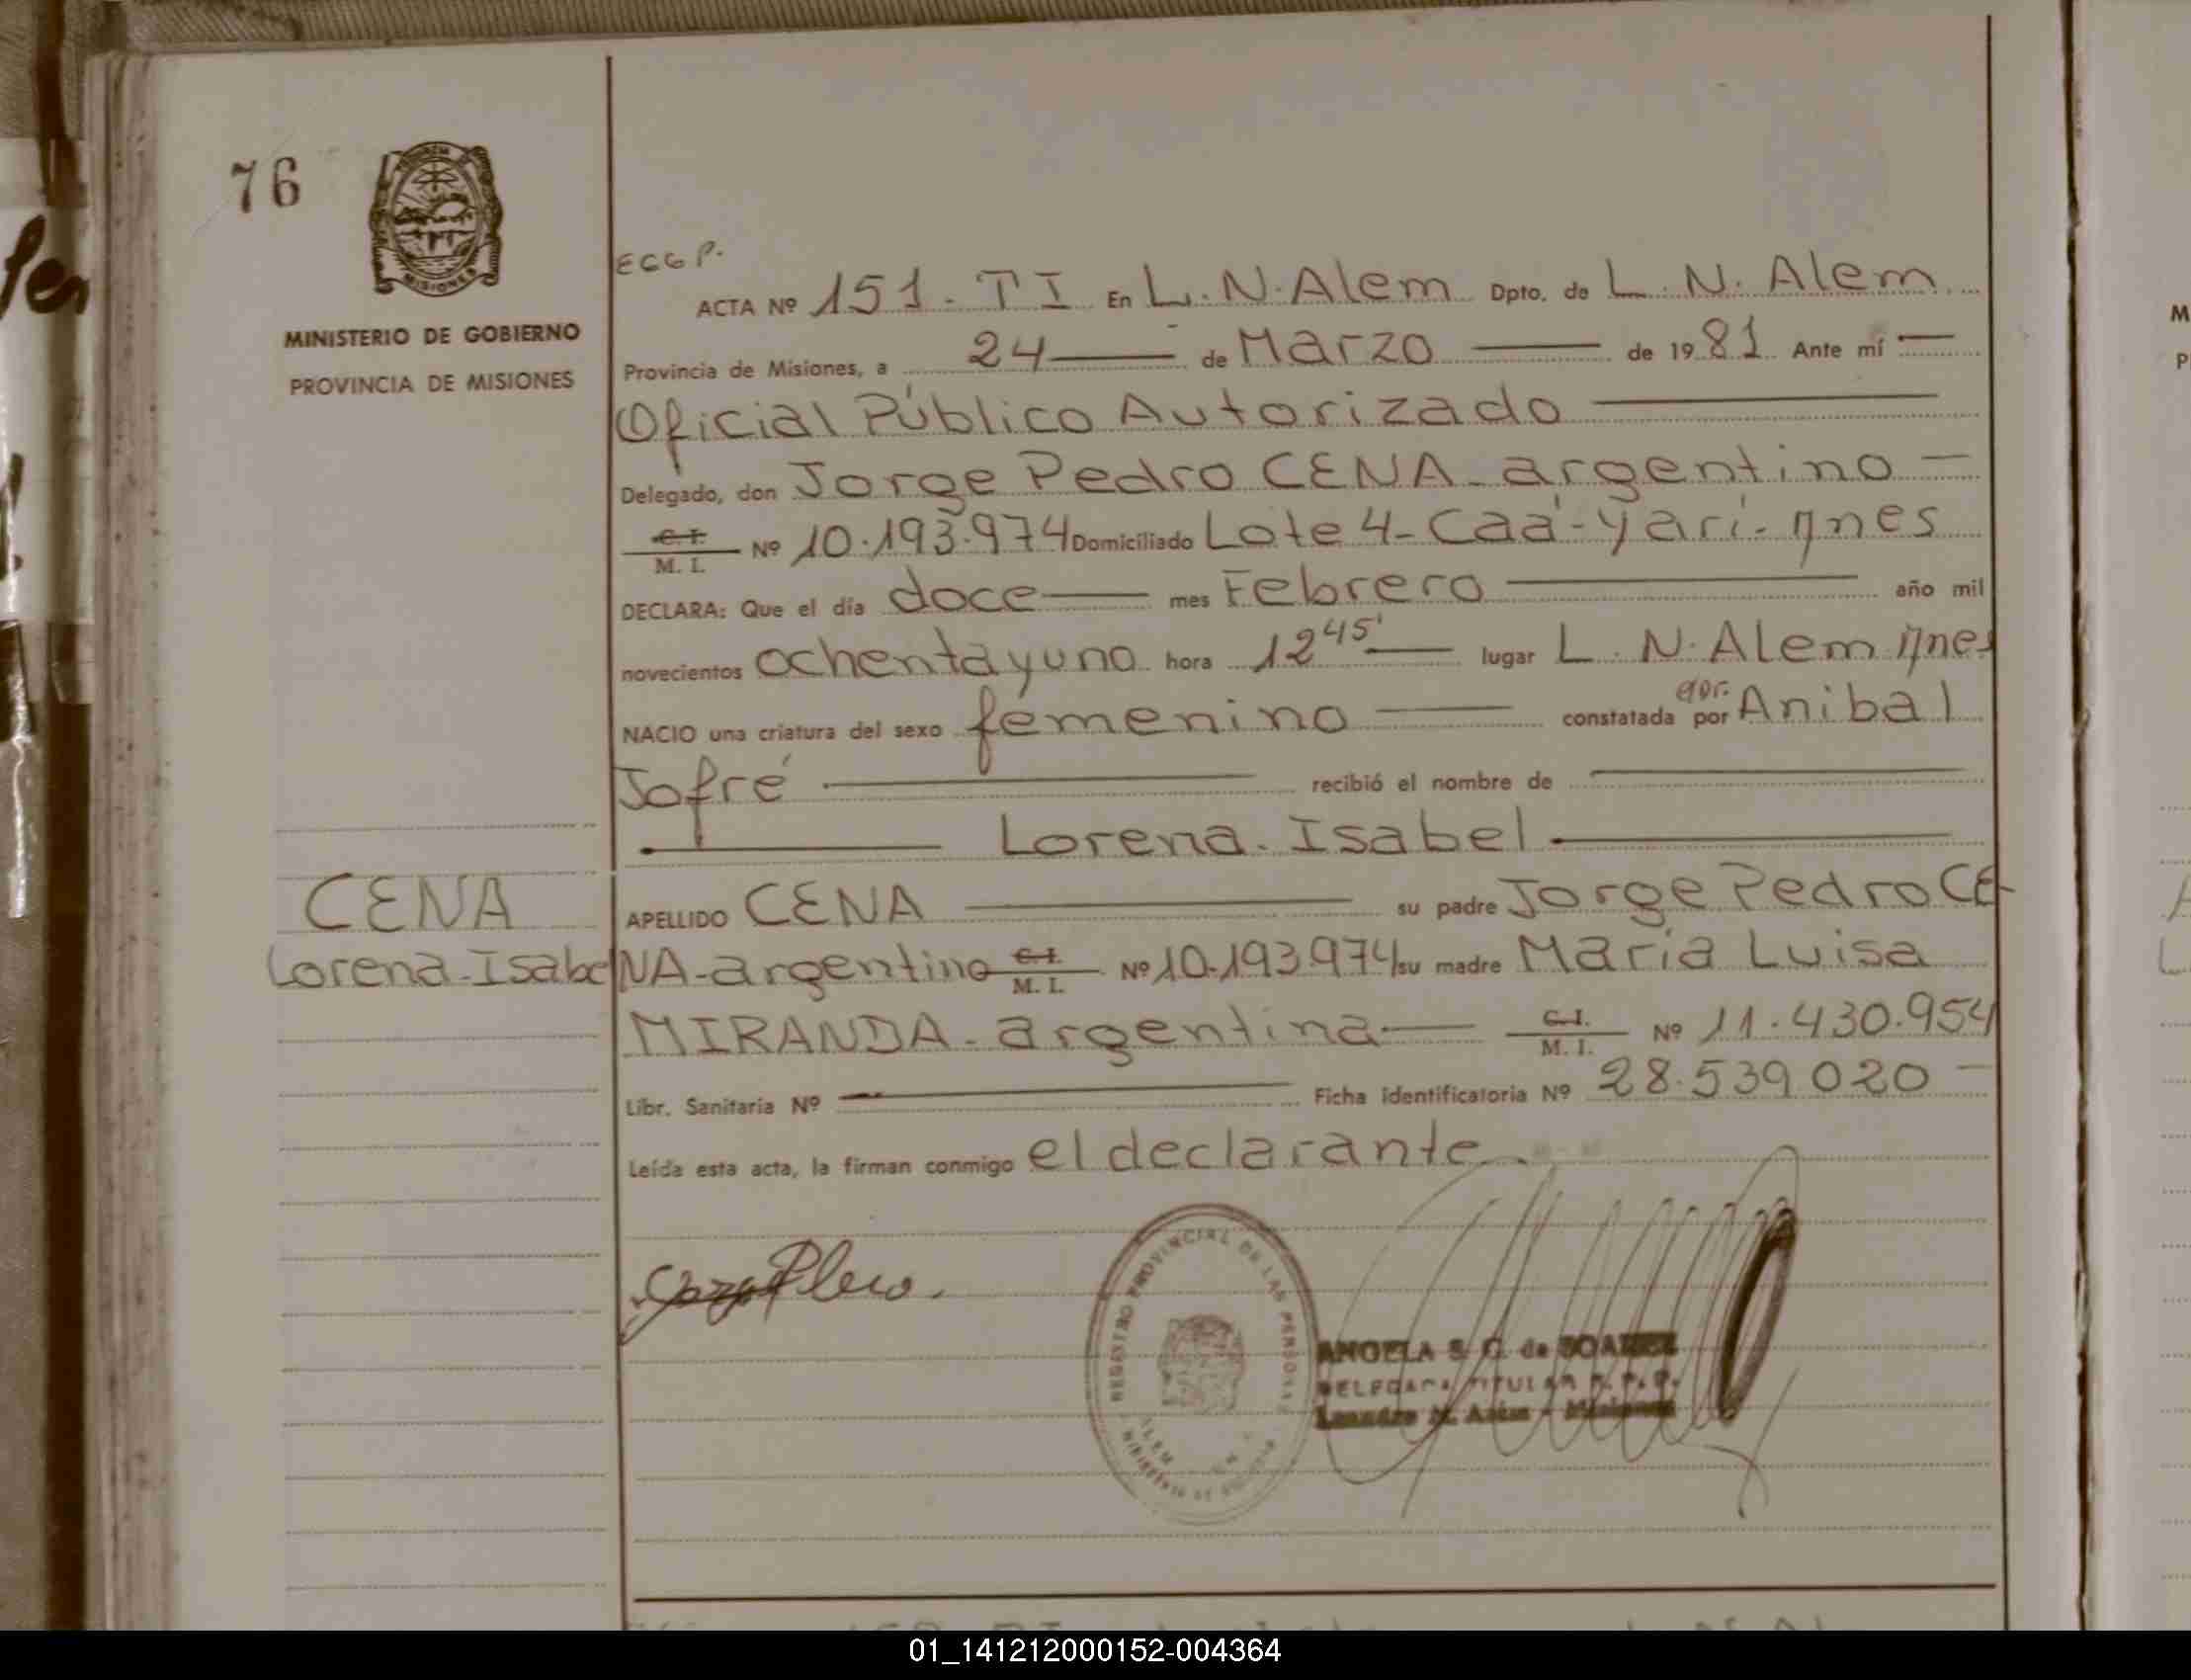 76
MINISTERIO DE GOBIERNO
PROVINCIA DE MISIONES
ECGP.
ACTA Nº 151-TI En L.N.Alem Dpto. de L.N.Alem
Provincia de Misiones, a 24 de Marzo de 1981 Ante mí
Oficial Público Autorizado
Delegado, don Jorge Pedro CENA-argentino
C.I. M.I. Nº 10.193.974 Domiciliado Lote 4-Caá-yarí-Mnes
DECLARA: Que el día doce mes Febrero año mil
novecientos ochentayuno hora 12 45' lugar L.N.Alem Mnes
NACIO una criatura del sexo femenino constatada por Anibal
Jofré recibió el nombre de
Lorena-Isabel
CENA
APELLIDO CENA su padre Jorge Pedro CE-
Lorena-Isabel
NA-argentino C.I. M.I. Nº 10.193.974 su madre María Luisa
MIRANDA-argentina C.I. M.I. Nº 11.430.954
Libr. Sanitaria Nº Ficha Identificatoria Nº 28.539.020
Leída esta acta, la firman conmigo el declarante.
REGISTRO PROVINCIAL DE LAS PERSONAS
ALEM
ANGELA S. C. de SOAREZ
DELEGADA TITULAR R. P. P.
Leandro N. Alem - Misiones
01_141212000152-004364